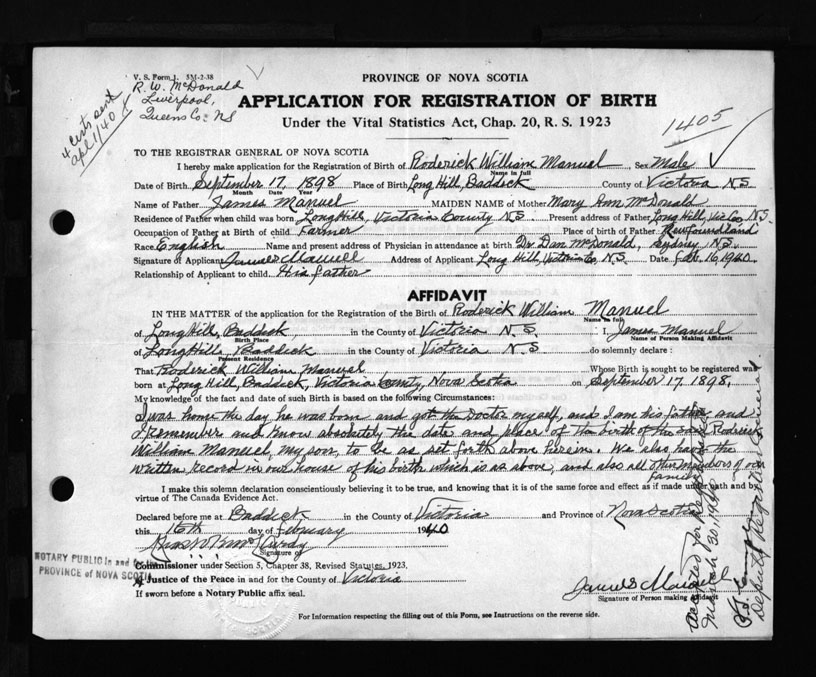 V. S. Form 1. 5M-2-38
R. W. McDonald
Liverpool,
Queens Co. NS
4 certs sent
Apl 1/40
PROVINCE OF NOVA SCOTIA
APPLICATION FOR REGISTRATION OF BIRTH
Under the Vital Statistics Act, Chap. 20, R. S. 1923
1405
TO THE REGISTRAR GENERAL OF NOVA SCOTIA
I hereby make application for the Registration of Birth of Roderick William Manuel, Sex Male
Name in full
Date of Birth September 17, 1898 Place of Birth Long Hill, Baddeck County of Victoria N.S.
Month Date Year
Name of Father James Manuel MAIDEN NAME of Mother Mary Ann McDonald
Residence of Father when child was born Long Hill, Victoria County N.S. Present address of Father Long Hill, Vic Co. N.S.
Occupation of Father at Birth of child Farmer Place of birth of Father Newfoundland
Race English Name and present address of Physician in attendance at birth Dr. Dan McDonald, Sydney N.S.
Signature of Applicant James Manuel Address of Applicant Long Hill, Victoria Co. N.S. Date Feb. 16, 1940
Relationship of Applicant to child. His father
AFFIDAVIT
IN THE MATTER of the application for the Registration of the Birth of Roderick William Manuel
Name in full
of Long Hill, Baddeck in the County of Victoria N.S. I, James Manuel
Birth Place Name of Person Making Affidavit
of Long Hill Baddeck in the County of Victoria N.S. do solemnly declare :
Present Residence
That Roderick William Manuel Whose Birth is sought to be registered was
born at Long Hill, Baddeck, Victoria County, Nova Scotia on September 17, 1898.
My knowledge of the fact and date of such Birth is based on the following Circumstances:
I was home the day he was born and got the Doctor myself, and I am his father and
I remember and know absolutely the date and place of the birth of the said Roderick
William Manuel, my son, to be as set forth above herein. We also have the
written record in our house of his birth which is as above, and also all other members of our
family
I make this solemn declaration conscientiously believing it to be true, and knowing that it is of the same force and effect as if made under oath and by
virtue of The Canada Evidence Act.
Declared before me at Baddeck in the County of Victoria and Province of Nova Scotia
this 16th day of February 1940
Signature of
NOTARY PUBLIC in and for the
PROVINCE of NOVA SCOTIA
Commissioner under Section 5, Chapter 38, Revised Statutes, 1923.
A Justice of the Peace in and for the County of Victoria
If sworn before a Notary Public affix seal.
James Manuel
Signature of Person making Affidavit
For Information respecting the filling out of this Form, see Instructions on the reverse side.
Accepted for
March 30, 1940
Deputy Registrar General